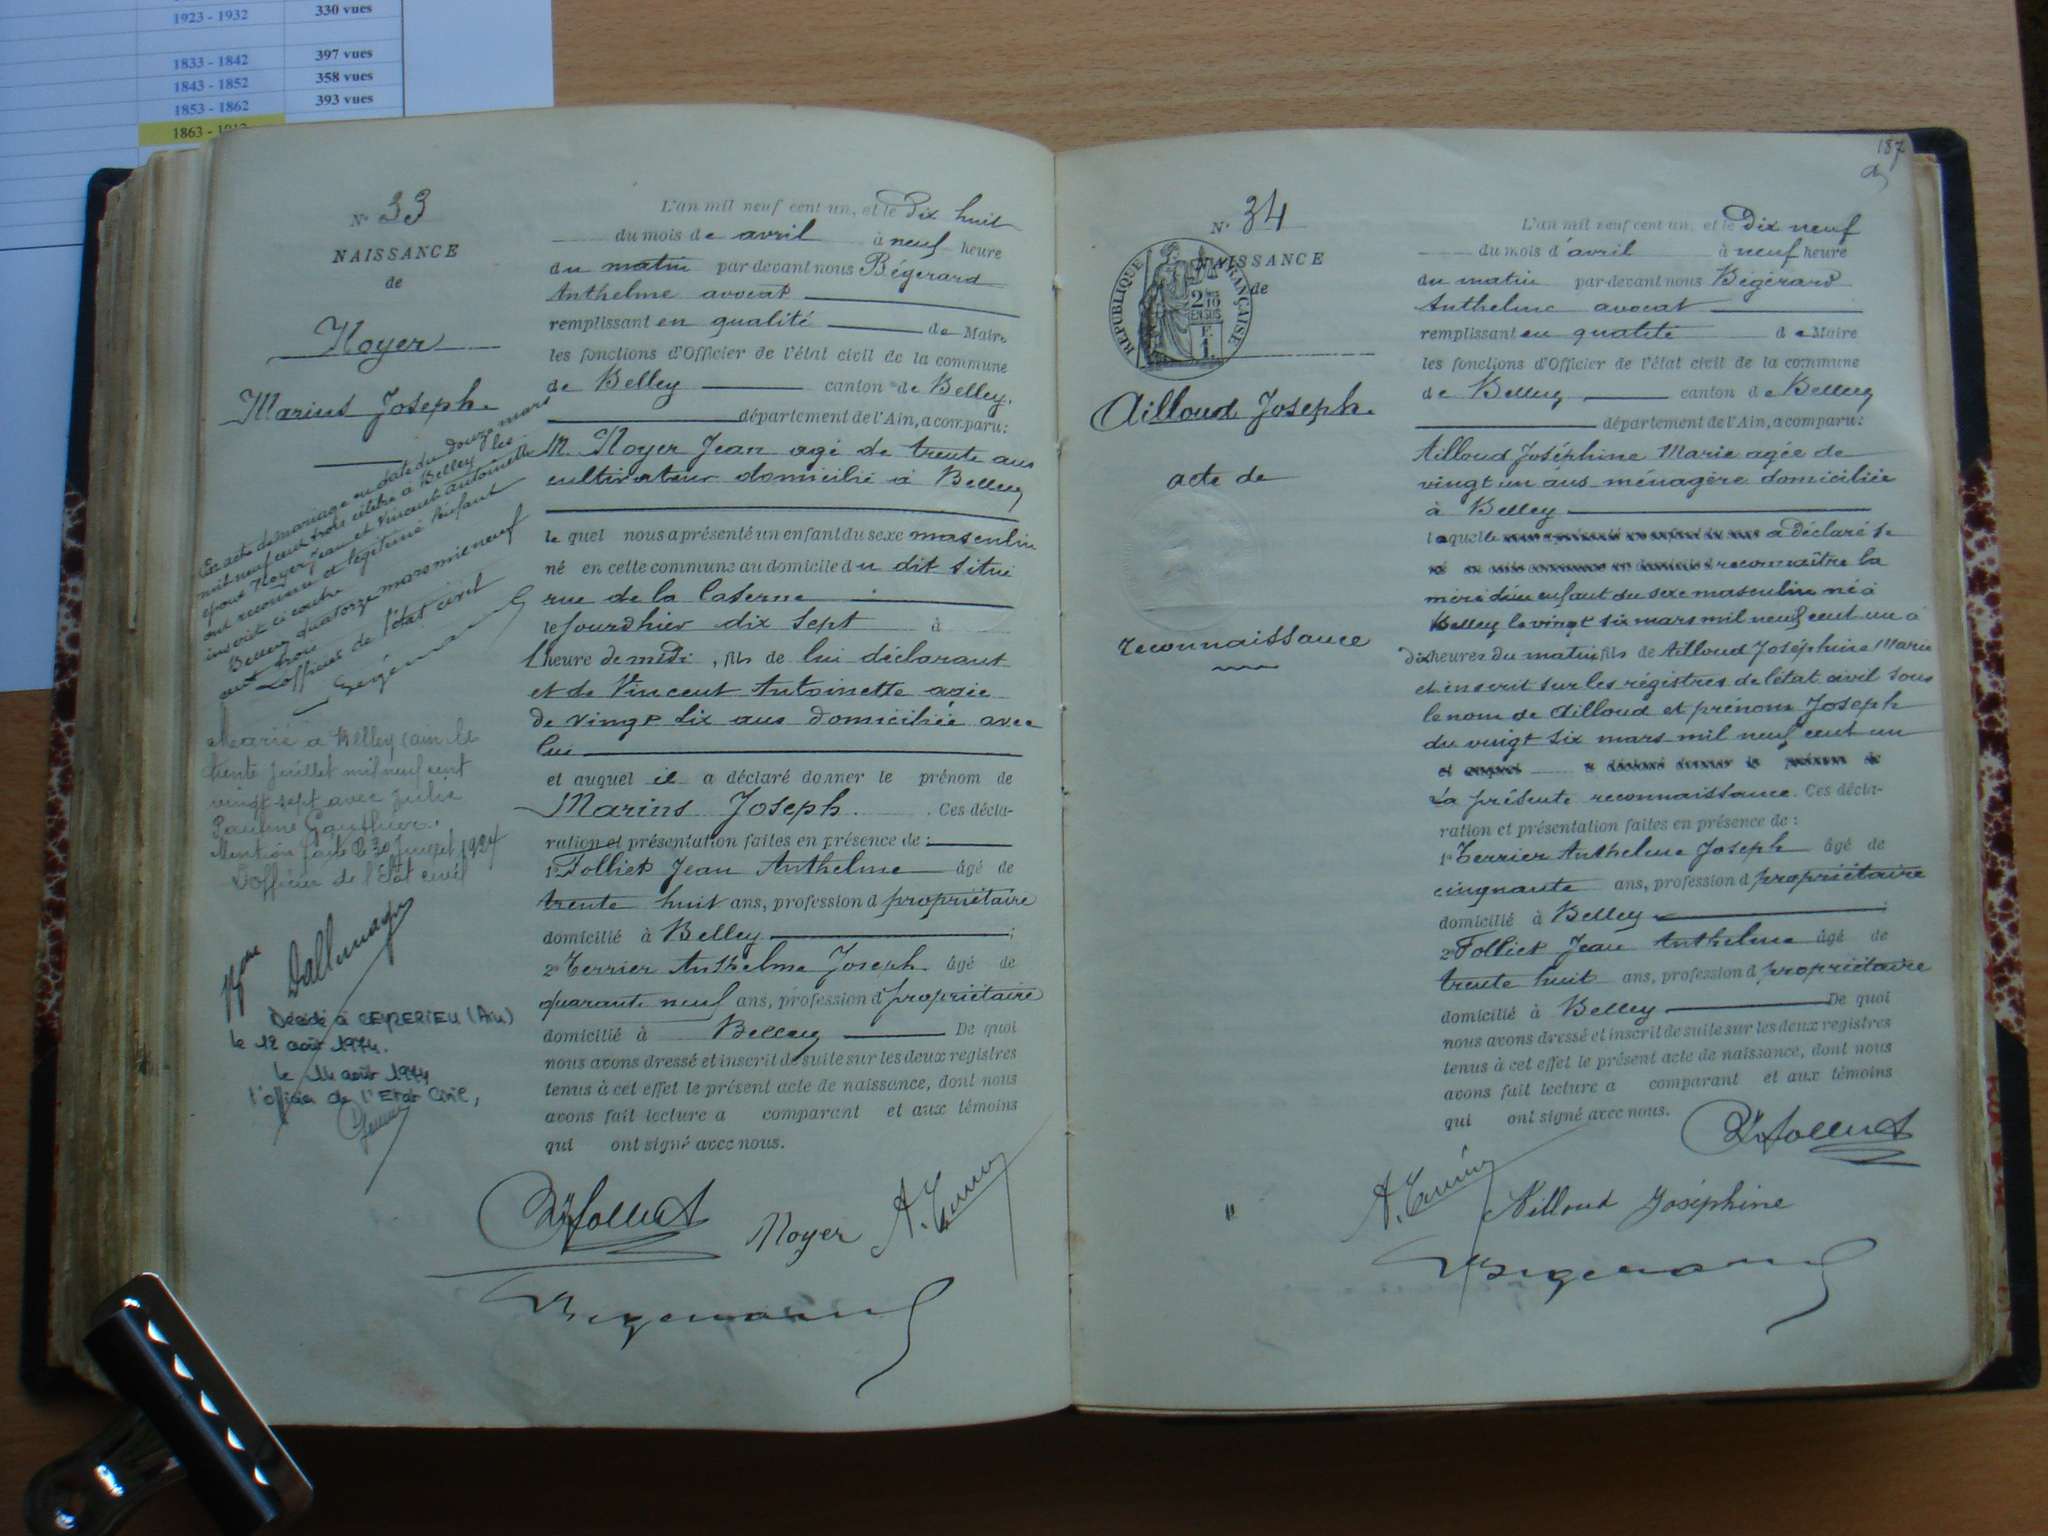 1923 - 1932 330 vues
1833 - 1842 397 vues
1843 - 1852 358 vues
1853 - 1862 393 vues
1863 -
N° 33
NAISSANCE
de
Noyer
Marius Joseph.
En acte de mariage en date du douze mars
mil neuf cent trois célébré à Belley les
époux Noyer Jean et Vincent antoinette
ont reconnu et légitimé l'enfant
inscrit ci contre
Belley quatorze mars mil neuf
cent trois
L'officier de l'état civil
Marié à Belley (ain) le
trente juillet mil neuf cent
vingt sept avec Julie
Pauline Gauthier.
Mention faite le 30 Juillet 1927
L'officier de l'état civil
Décédé à CEYZERIEU (Ain)
le 12 août 1974.
le 14 août 1974
l'officier de l'Etat Civil,
L'an mil neuf cent un, et le Dix huit
du mois de avril à neuf heure
du matin par-devant nous Bégerard
Anthelme avocat
remplissant en qualité de Maire
les fonctions d'Officier de l'état civil de la commune
de Belley canton de Belley.
département de l'Ain, a comparu:
M. Noyer Jean agé de trente ans
cultivateur domicilié à Belley
le quel nous a présenté un enfant du sexe masculin
né en cette commune au domicile du dit situé
rue de la Caserne
le jourdhier dix sept à
l'heure de midi, fils de lui déclarant
et de Vincent Antoinette agée
de vingt six ans domiciliée avec
lui
et auquel il a déclaré donner le prénom de
Marius Joseph. Ces décla-
ration et présentation faites en présence de:
1° Folliet Jean Anthelme âgé de
trente huit ans, profession d propriétaire
domicilié à Belley ;
2° Terrier Anthelme Joseph âgé de
quarante neuf ans, profession d' propriétaire
domicilié à Belley De quoi
nous avons dressé et inscrit de suite sur les deux registres
tenus à cet effet le présent acte de naissance, dont nous
avons fait lecture a comparant et aux témoins
qui ont signé avec nous.
Noyer
187
N° 34
NAISSANCE
de
RÉPUBLIQUE FRANÇAISE
Ailloud Joseph.
acte de
reconnaissance
L'an mil neuf cent un, et le Dix neuf
du mois d'avril à neuf heure
du matin par-devant nous Bégérard
Anthelme avocat
remplissant en qualité de Maire
les fonctions d'Officier de l'état civil de la commune
de Belley canton de Belley
département de l'Ain, a comparu:
Ailloud Joséphine Marie agée de
vingt un ans ménagère domiciliée
à Belley
laquelle a déclaré se
reconnaître la
mère d'un enfant du sexe masculin né à
Belley le vingt six mars mil neuf cent un à
dix heures du matin fils de Ailloud Joséphine Marie
et inscrit sur les régistres de l'état civil sous
le nom de Ailloud et prénom Joseph
du vingt six mars mil neuf cent un
La présente reconnaissance. Ces décla-
ration et présentation faites en présence de:
1° Terrier Anthelme Joseph âgé de
cinquante ans, profession d propriétaire
domicilié à Belley
2° Folliet Jean Anthelme âgé de
trente huit ans, profession d propriétaire
domicilié à Belley De quoi
nous avons dressé et inscrit de suite sur les deux registres
tenus à cet effet le présent acte de naissance, dont nous
avons fait lecture a comparant et aux témoins
qui ont signé avec nous.
Ailloud Joséphine